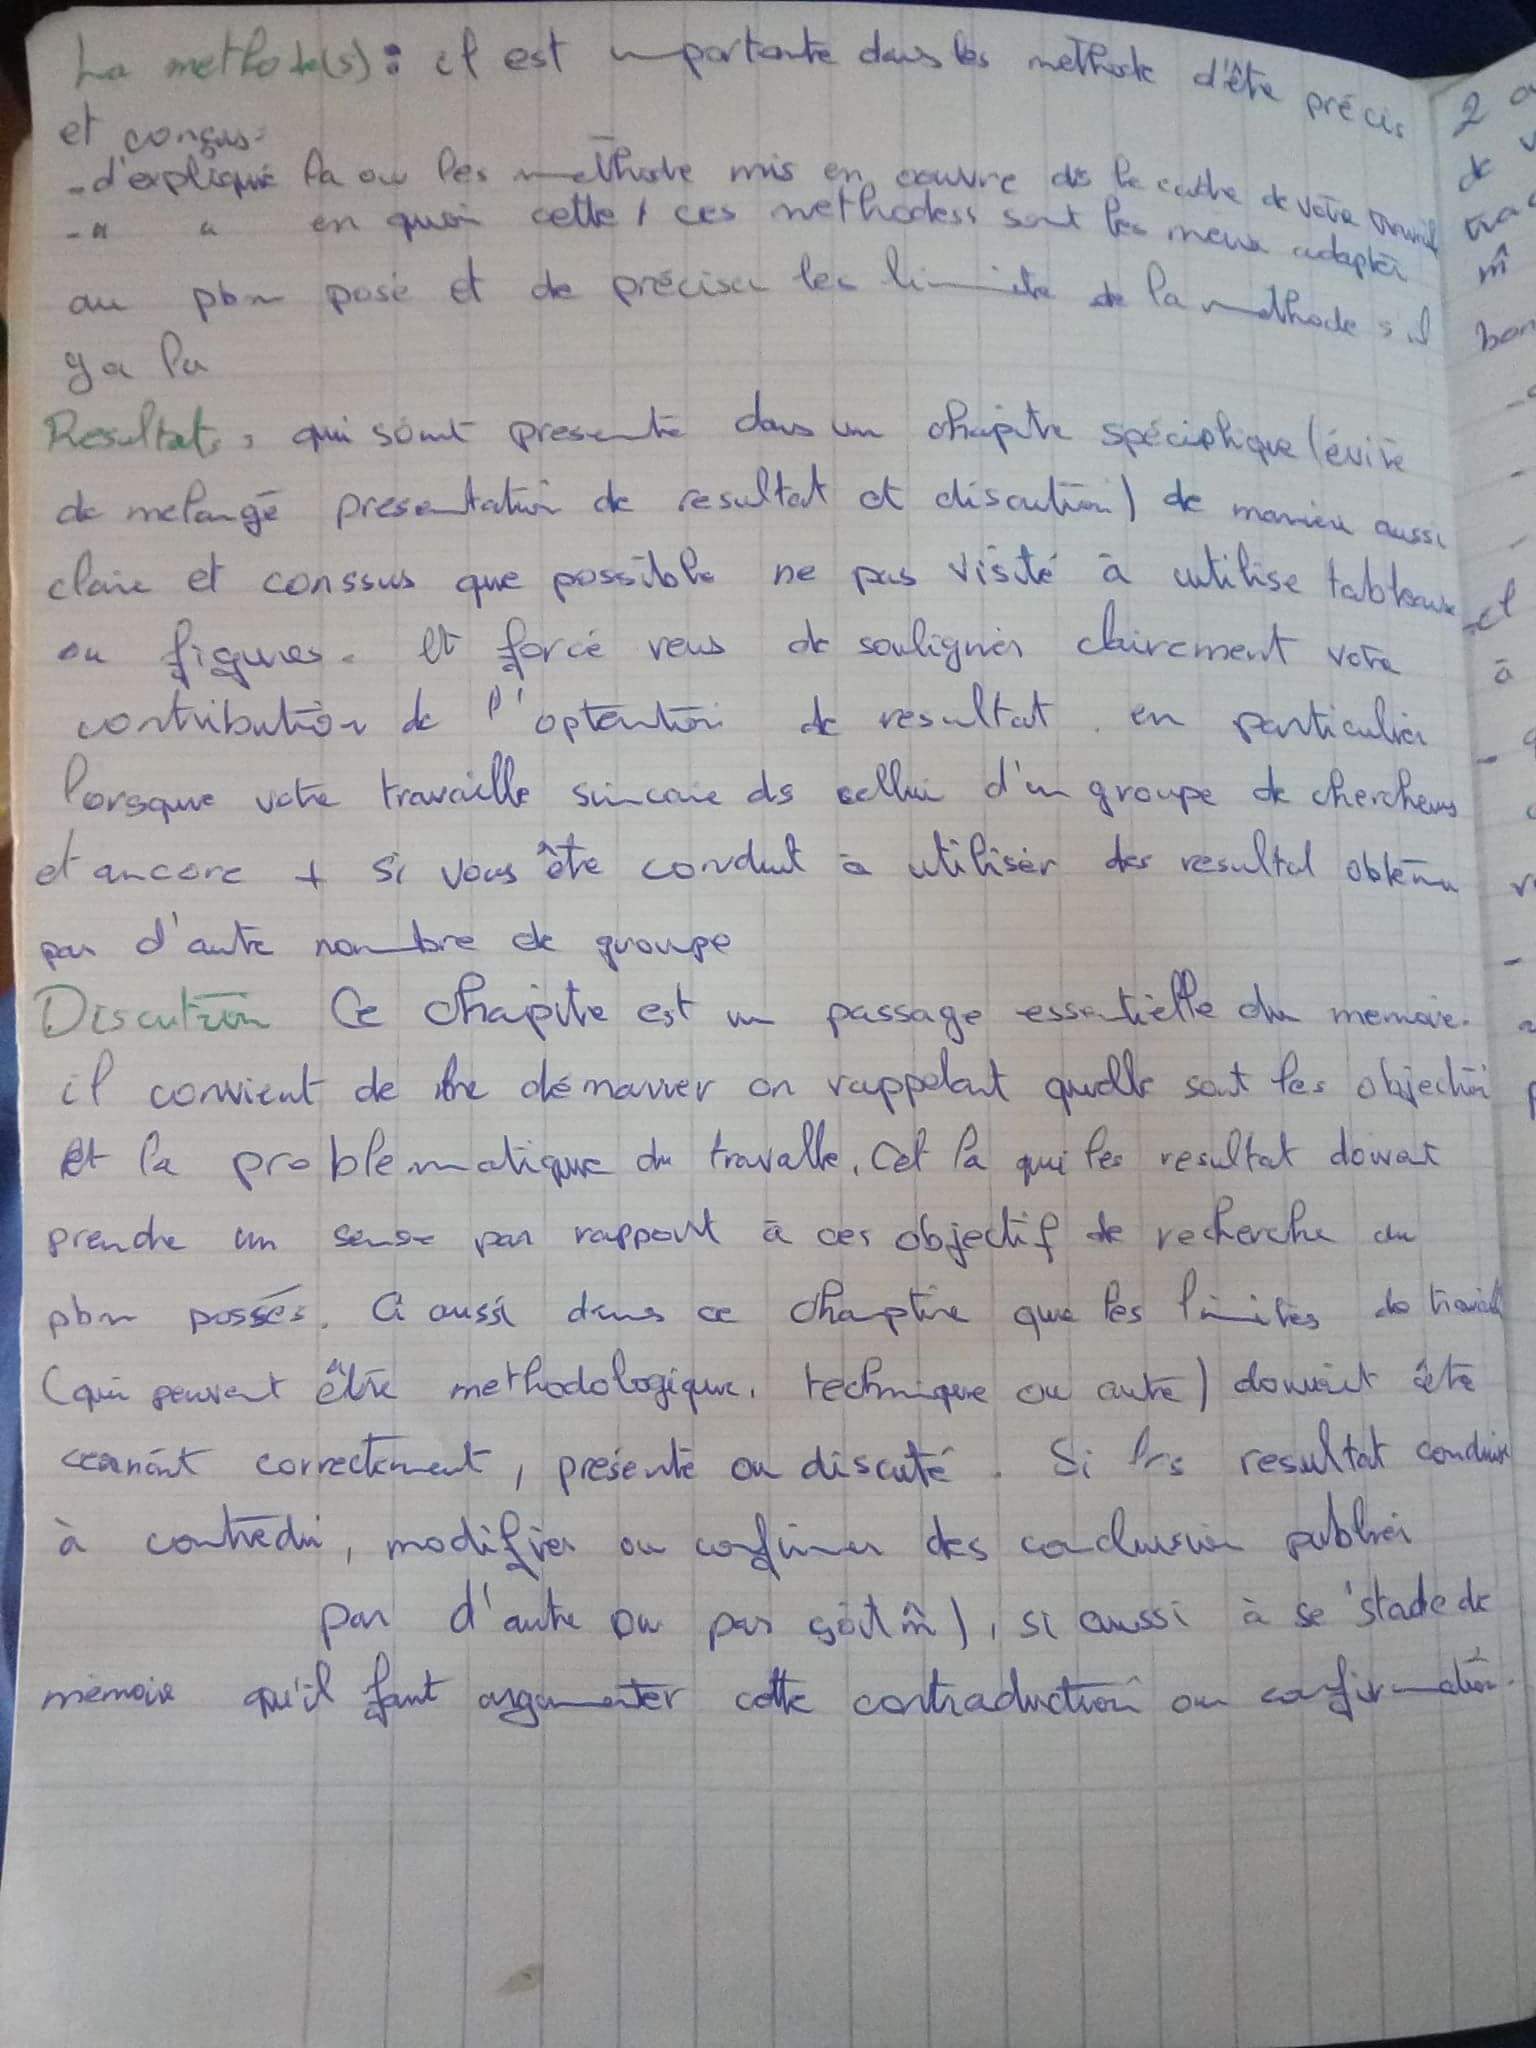 La methode(s) : il est importante dans les méthode d'être précis
et consus.
- d'expliqué la ou les methode mis en oeuvre ds le cadre de votre travail
- " " en quoi cette / ces methodess sont les mieux adapter
au pbm posé et de préciser les limite de la methode s'il
y a la
Resultats, qui sont presenté dans un chapitre spéciphique (évité
de melangé presentation de resultat et discution) de maniere aussi
claire et conssus que possible ne pas visité à utilise tableaux
ou figures. et forcé vous de souligner clairement votre
contribution de l'optention de resultat. en particulier
lorsque votre travaille sincaie ds cellui d'un groupe de chercheurs
et ancore + si vous être conduit à utiliser des resultat obtenu
par d'autre nombre de groupe
Discution Ce chapitre est un passage essentielle du memoire.
il convient de démarrer en rappelant quelle sont les objectif
Et la problematique du travaille. Cet la que les resultat doivent
prendre un sense par rapport à ces objectif de recherche au
pbm possés. Ci aussi dans ce chaptire que les limites de travail
(qui peuvent être methodologique, technique ou autre) doivent être
correctement, présenté ou discuté. Si les resultat conduise
à contredir, modifier ou confirmer des conclusion publier
par d'autre ou par soit m̂), si aussi à se stade de
mémoire qu'il faut argumenter cette contraduction ou confirmation.
2
de
m̂
bon
et
à